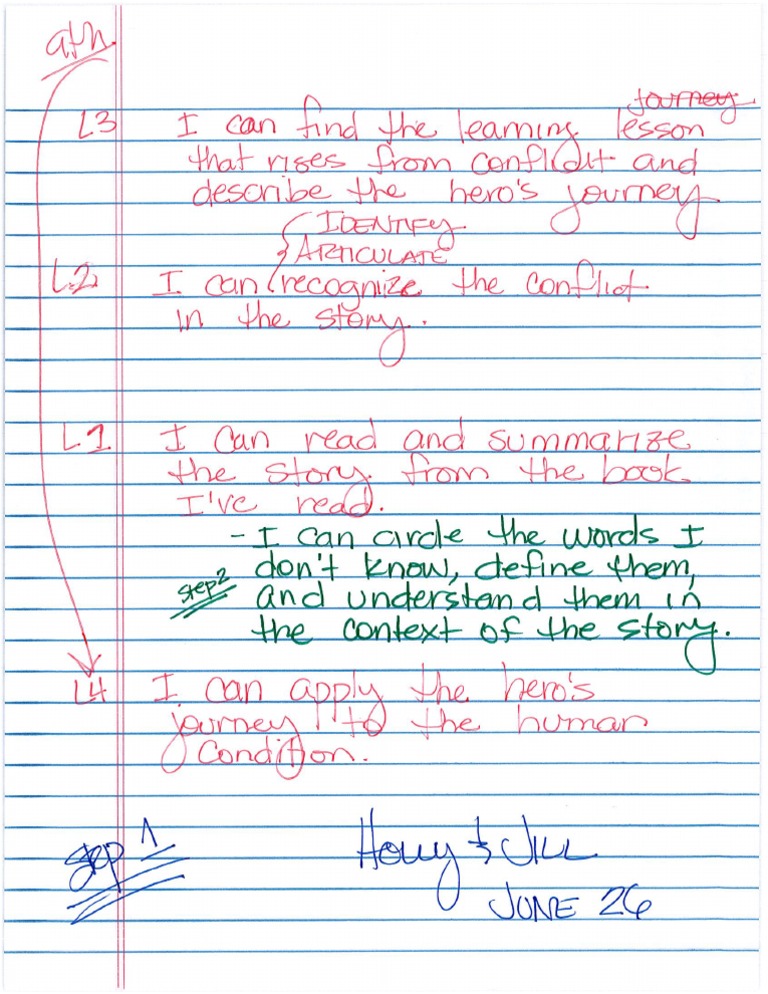 ath
journey
L3 I can find the learning lesson
that rises from conflict and
describe the hero's journey
IDENTIFY
ARTICULATE
L.2 I can recognize the conflict
in the story.
L.1 I can read and summarize
the story from the book
I've read.
- I can circle the words I
step 2 don't know, define them,
and understand them in
the context of the story.
L4 I can apply the hero's
journey to the human
Condition.
step 1 Holly & JILL
JUNE 26